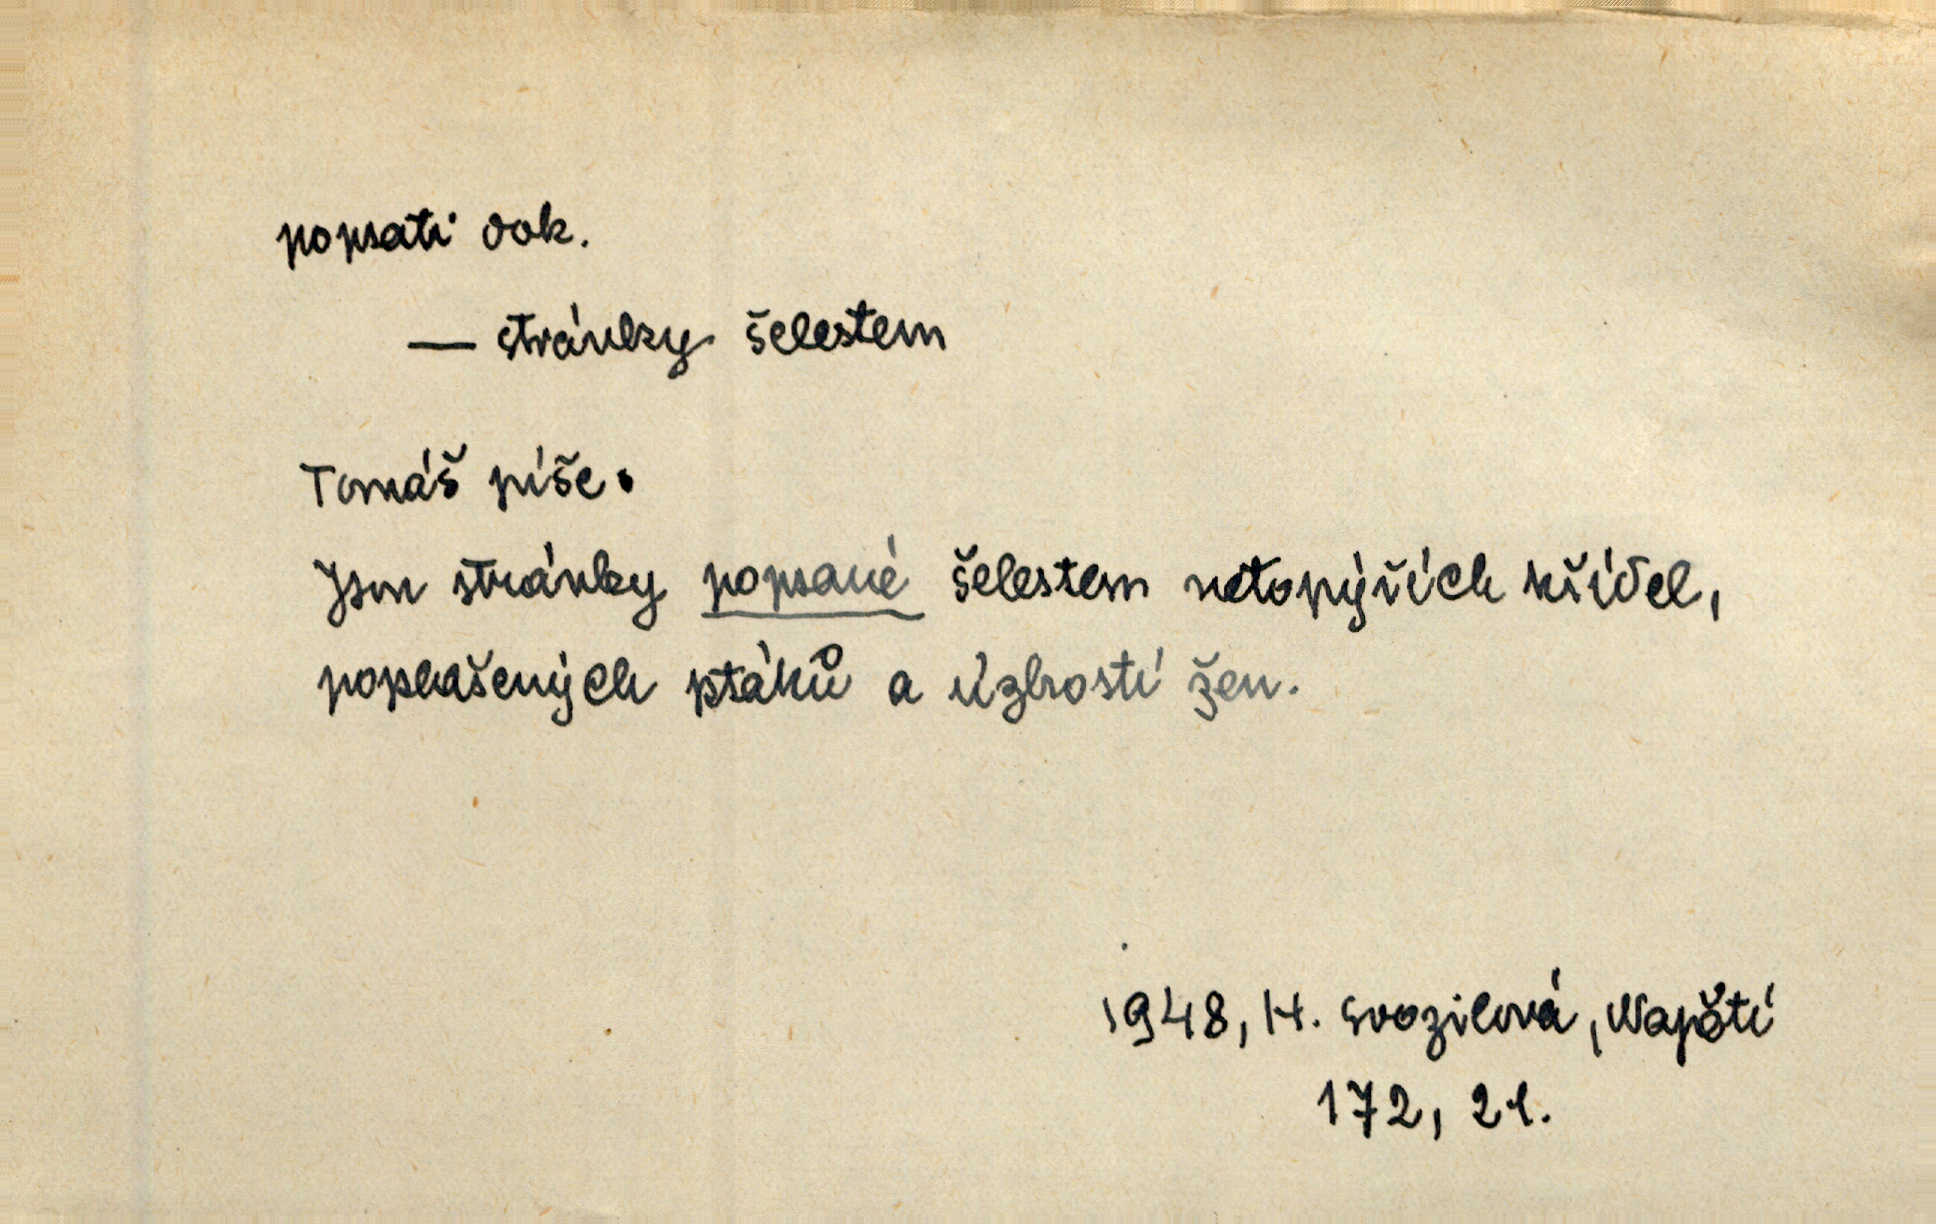 popsati dok.
— stránky šelestem
Tomáš píše.
Jsou stránky popsané šelestem netopýřích křídel,
poplašených ptáků a úzkostí žen.
1948, H. Svozilová, Napětí
172, 21.